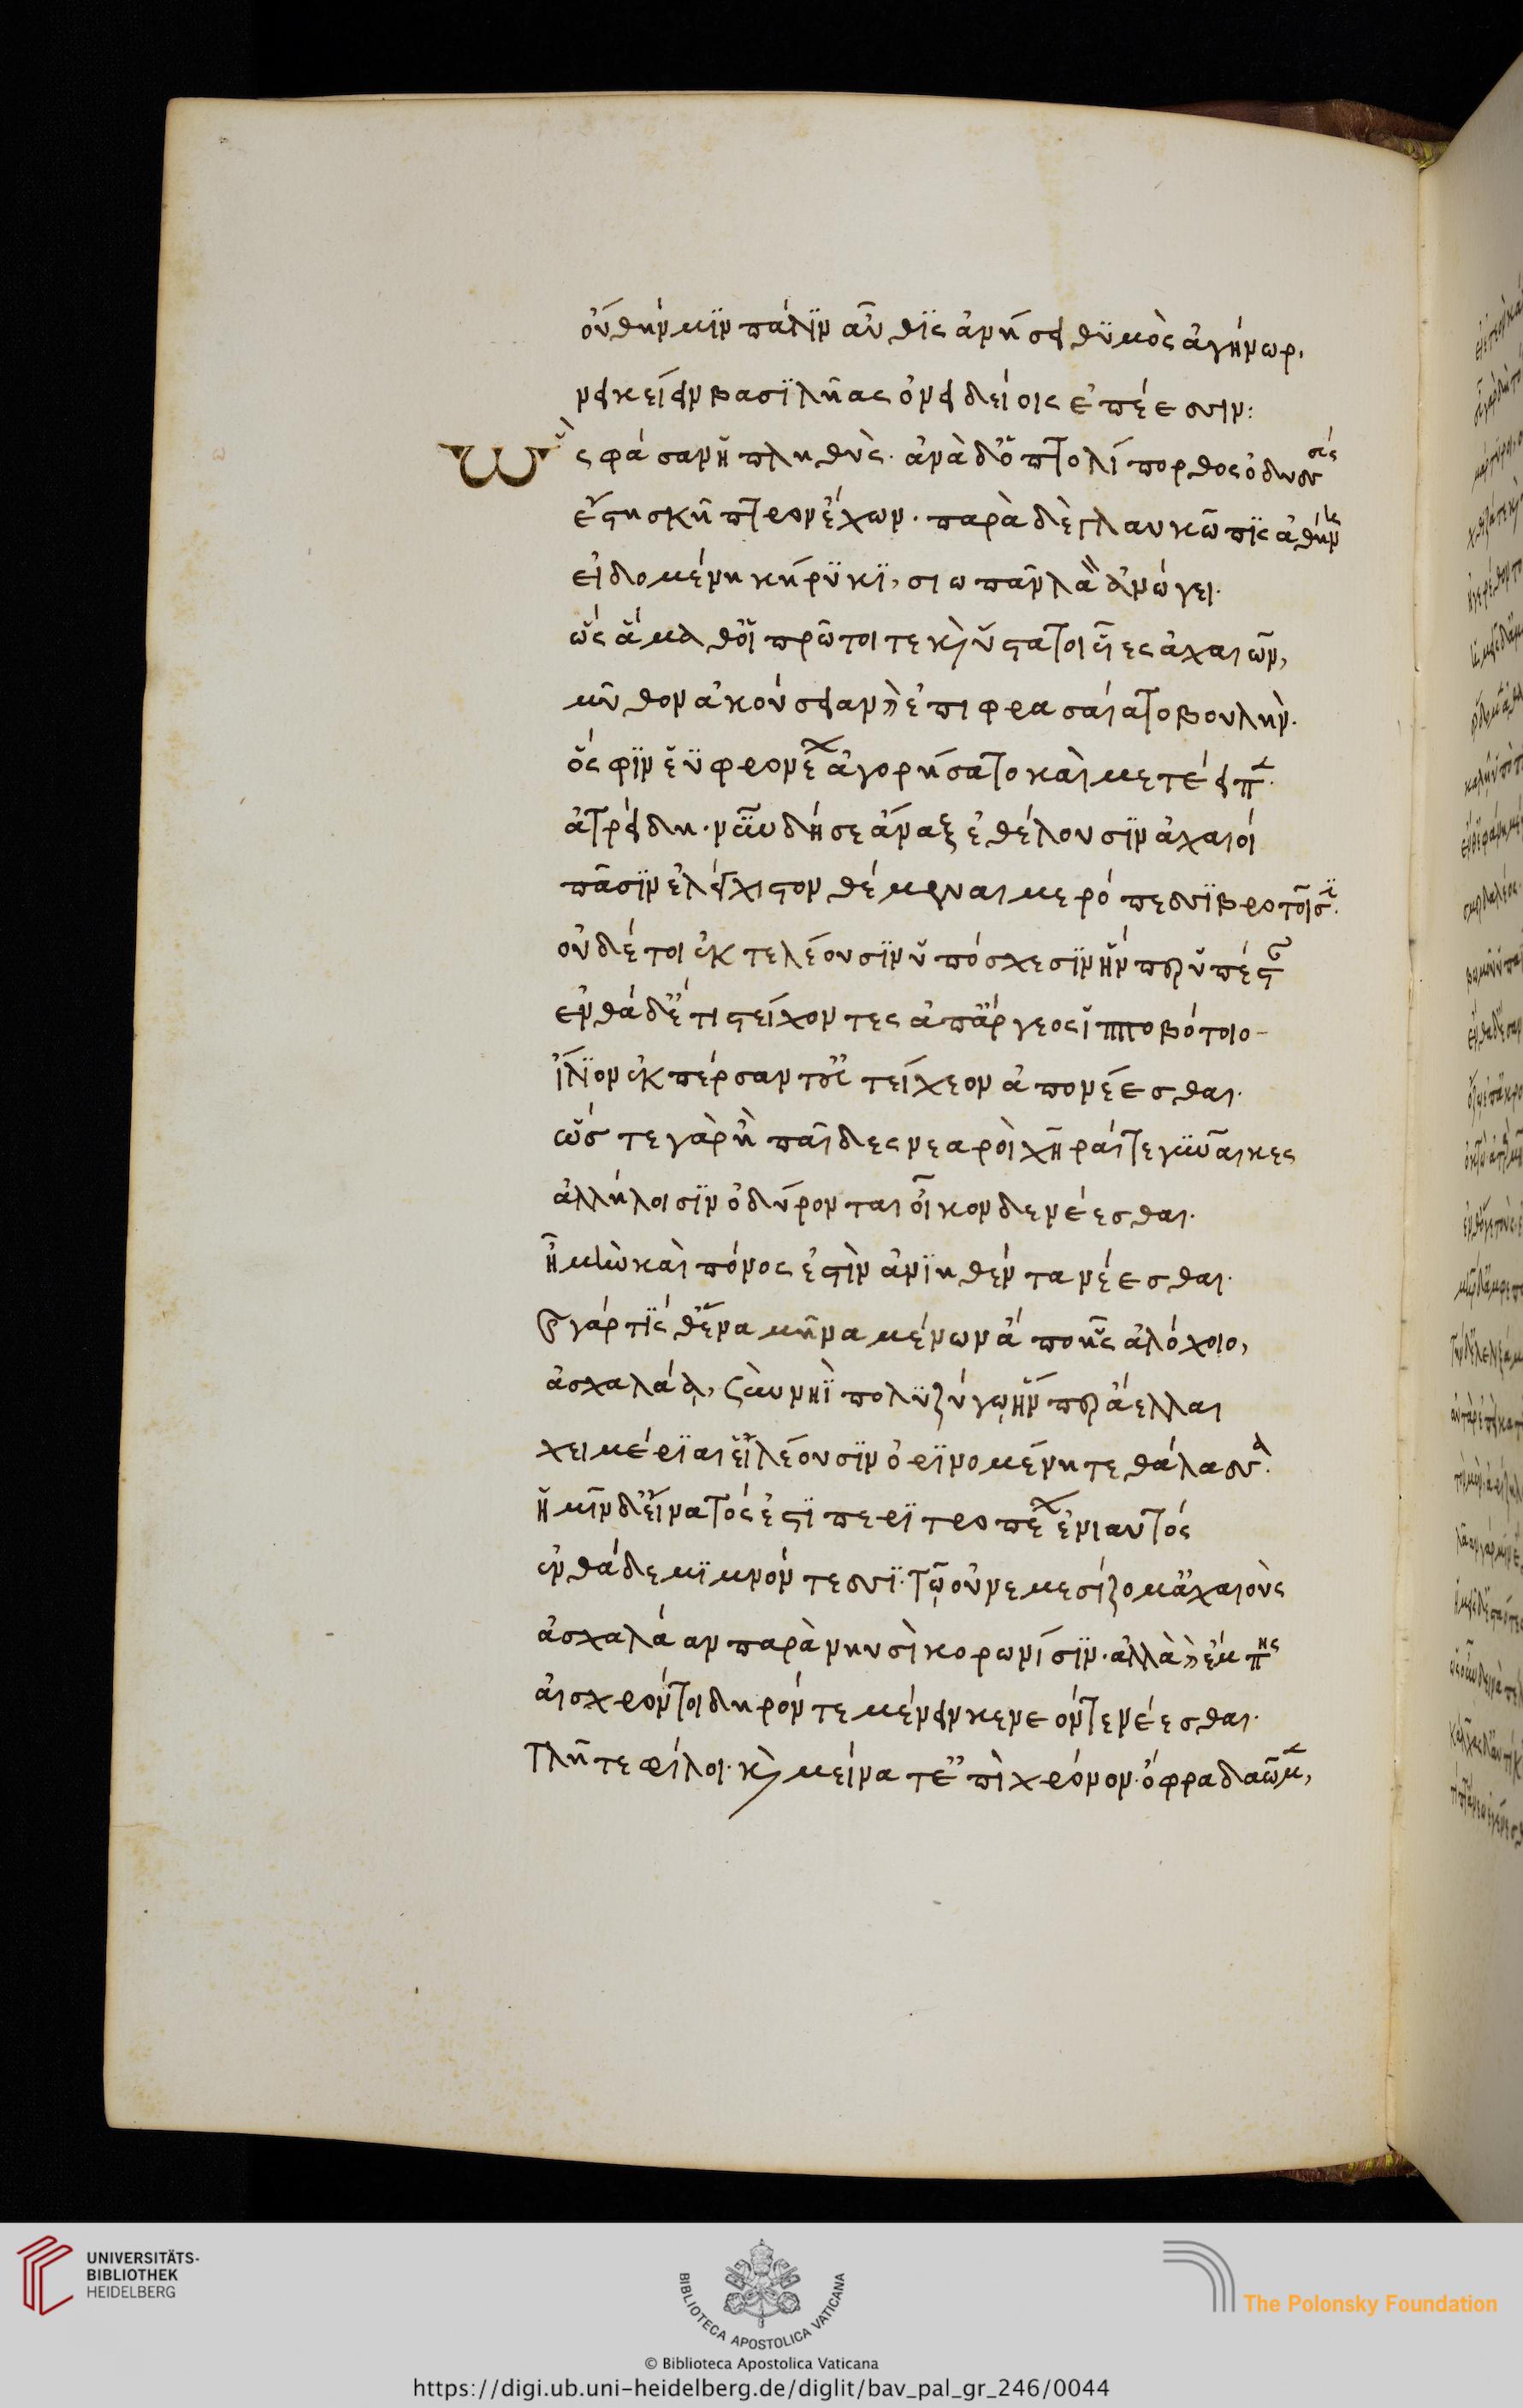 οὔ θήν μιν πάλιν αὖθις ἀνήσει θυμὸς ἀγήνωρ,
νεικείειν βασιλῆας ὀνειδείοις ἐπέεσσιν:
Ὣς φάσαν ἡ πληθύς· ἀνὰ δ' ὁ πτολίπορθος ὀδυσσεύς
ἔστη σκῆπτρον ἔχων· παρὰ δὲ γλαυκῶπις ἀθήνη
εἰδομένη κήρυκι, σιωπᾶν λαὸν ἀνώγει·
ὡς ἅμα θ' οἱ πρῶτοι τε καὶ ὕστατοι υἷες ἀχαιῶν,
μῦθον ἀκούσειαν καὶ ἐπιφρασαίατο βουλήν·
ὅς φιν ἐϋφρονέων ἀγορήσατο καὶ μετέειπεν·
ἀτρείδη· νῦν δή σε ἄναξ ἐθέλουσιν ἀχαιοί
πᾶσιν ἐλέγχιστον θέμεναι μερόπεσσι βροτοῖσιν·
οὐδέ τοι ἐκτελέουσιν ὑπόσχεσιν ἥνπερ ὑπέσταν
ἐνθάδ' ἔτι στείχοντες ἀπ' ἄργεος ἱπποβότοιο
ἴλιον ἐκπέρσαντ' εὐτείχεον ἀπονέεσθαι·
ὥστε γὰρ ἢ παῖδες νεαροὶ χῆραί τε γυναῖκες
ἀλλήλοισιν ὀδύρονται οἶκον δὲ νέεσθαι·
ἦ μὴν καὶ πόνος ἐστὶν ἀνιηθέντα νέεσθαι·
καὶ γάρ τίς θ' ἕνα μῆνα μένων ἀπὸ ἧς ἀλόχοιο,
ἀσχαλάᾳ, σὺν νηῒ πολυζύγῳ ἥνπερ ἄελλαι
χειμέριαι εἰλέουσιν ὀρινομένη τε θάλασσα·
ἡμῖν δ' εἴνατός ἐστι περιτροπέων ἐνιαυτός
ἐνθάδε μιμνόντεσσι· τῷ οὐ νεμεσίζομ' ἀχαιοὺς
ἀσχαλάαν παρὰ νηυσὶ κορωνίσιν· ἀλλὰ καὶ ἔμπης
αἰσχρόν τοι δηρόν τε μένειν κενεόν τε νέεσθαι·
τλῆτε φίλοι· καὶ μείνατ' ἐπὶ χρόνον· ὄφρα δαῶμεν,
UNIVERSITÄTS-
BIBLIOTHEK
HEIDELBERG
BIBLIOTECA APOSTOLICA VATICANA
The Polonsky Foundation
© Biblioteca Apostolica Vaticana
https://digi.ub.uni-heidelberg.de/diglit/bav_pal_gr_246/0044